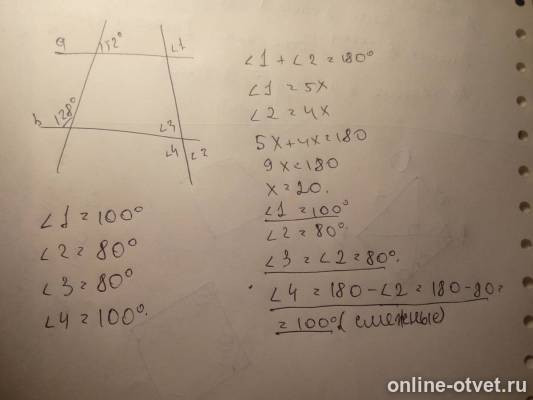 a 152° ∠1
b 128° ∠3
∠4 ∠2
∠1 = 100°
∠2 = 80°
∠3 = 80°
∠4 = 100°.
∠1 + ∠2 = 180°
∠1 = 5x
∠2 = 4x
5x+4x=180
9x=180
x=20.
∠1 = 100°
∠2 = 80°.
∠3 = ∠2 = 80°.
∠4 = 180-∠2 = 180-80=
=100° (смежные)
online-otvet.ru